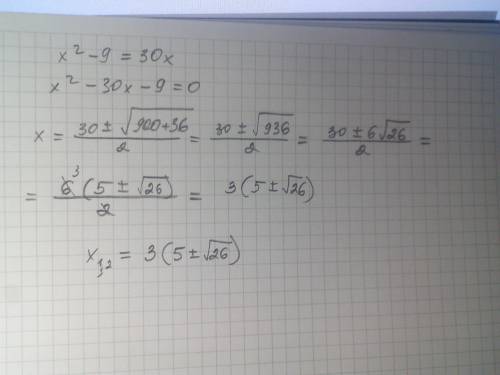 x² - 9 = 30x
x² - 30x - 9 = 0
x = (30 ± √(900+36))/2 = (30 ± √936)/2 = (30 ± 6√26)/2 =
= 6̸³(5 ± √26)/2̸ = 3(5 ± √26)
x₁,₂ = 3(5 ± √26)